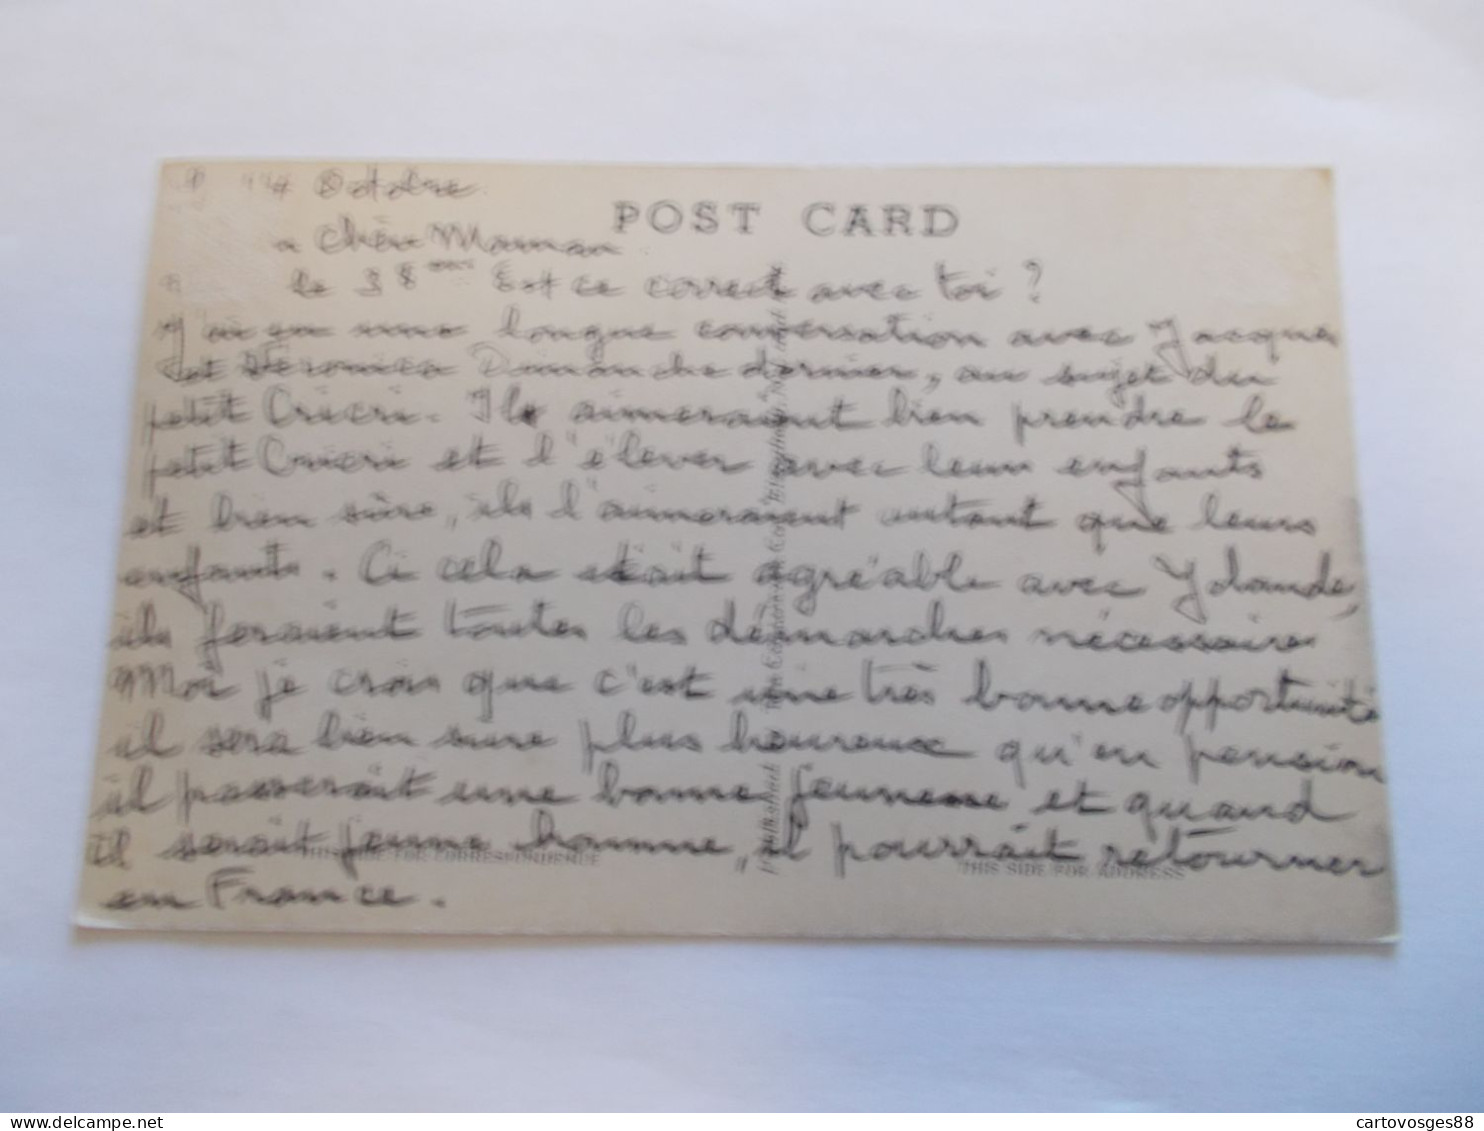 Octobre
POST CARD
Chère Maman
le 38ème Est ce correct avec toi ?
J'ai eu une longue conversation avec Jacques
et Véronica Dimanche dernier, au sujet du
petit Cricri. Ils aimeraient bien prendre le
petit Cricri et l'élever avec leur enfants
et bien sûre, ils l'aimeraient autant que leurs
enfants. Ci cela était agréable avec Yolande,
ils feraient toutes les démarches nécessaires
Moi je crois que c'est une très bonne opportunité
il sera bien sure plus heureux qu'en pension
il passerait une bonne jeunesse et quand
il serait jeune homme, il pourrait retourner
en France.
THIS SIDE FOR CORRESPONDENCE
THIS SIDE FOR ADDRESS
cartovosges88
www.delcampe.net